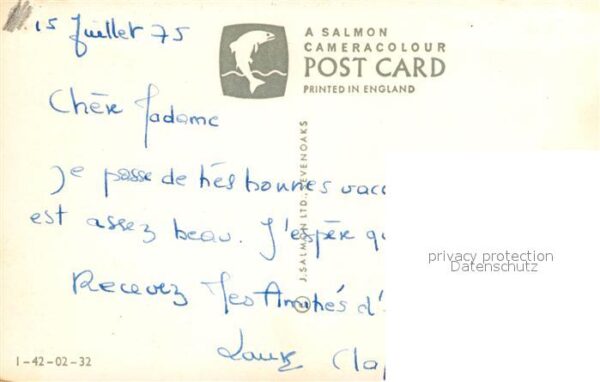 15 Juillet 75
A SALMON
CAMERACOLOUR
POST CARD
PRINTED IN ENGLAND
Chère Madame
Je passe de très bonnes vacc
est assez beau. J'espère qu
Recevez Mes Amitiés d'
J. SALMON LTD., SEVENOAKS ©
privacy protection
Datenschutz
1-42-02-32